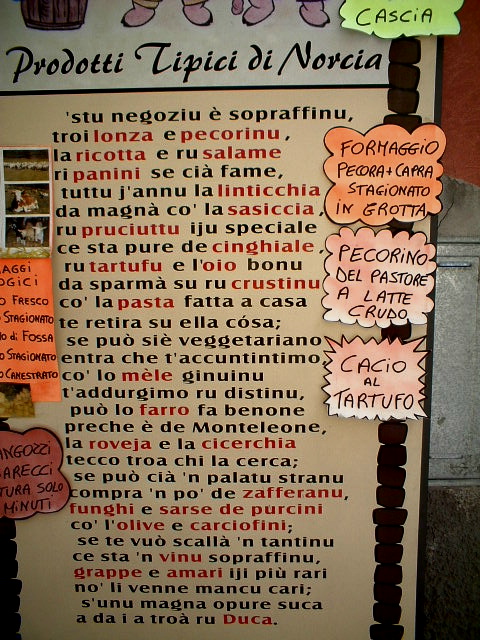 CASCIA
Prodotti Tipici di Norcia
'stu negoziu è sopraffinu,
troi lonza e pecorinu,
la ricotta e ru salame
ri panini se cià fame,
tuttu j'annu la linticchia
da magnà co' la sasiccia,
ru pruciuttu iju speciale
ce sta pure de cinghiale,
ru tartufu e l'oio bonu
da sparmà su ru crustinu
co' la pasta fatta a casa
te retira su ella cósa;
se può siè veggetariano
entra che t'accuntintimo,
co' lo mèle ginuinu
t'addurgimo ru distinu,
può lo farro fa benone
preche è de Monteleone,
la roveja e la cicerchia
tecco troa chi la cerca;
se può cià 'n palatu stranu
compra 'n po' de zafferanu,
funghi e sarse de purcini
co' l'olive e carciofini;
se te vuò scallà 'n tantinu
ce sta 'n vinu sopraffinu,
grappe e amari iji più rari
no' li venne mancu cari;
s'unu magna opure suca
a da i a troà ru Duca.
FORMAGGIO
PECORA+CAPRA
STAGIONATO
IN GROTTA
PECORINO
DEL PASTORE
A LATTE
CRUDO
CACIO
AL
TARTUFO
AGGI
OGICI
O FRESCO
STAGIONATO
di FOSSA
STAGIONATO
CANESTRATO
ANGOZZI
ARECCI
TURA SOLO
MINUTI